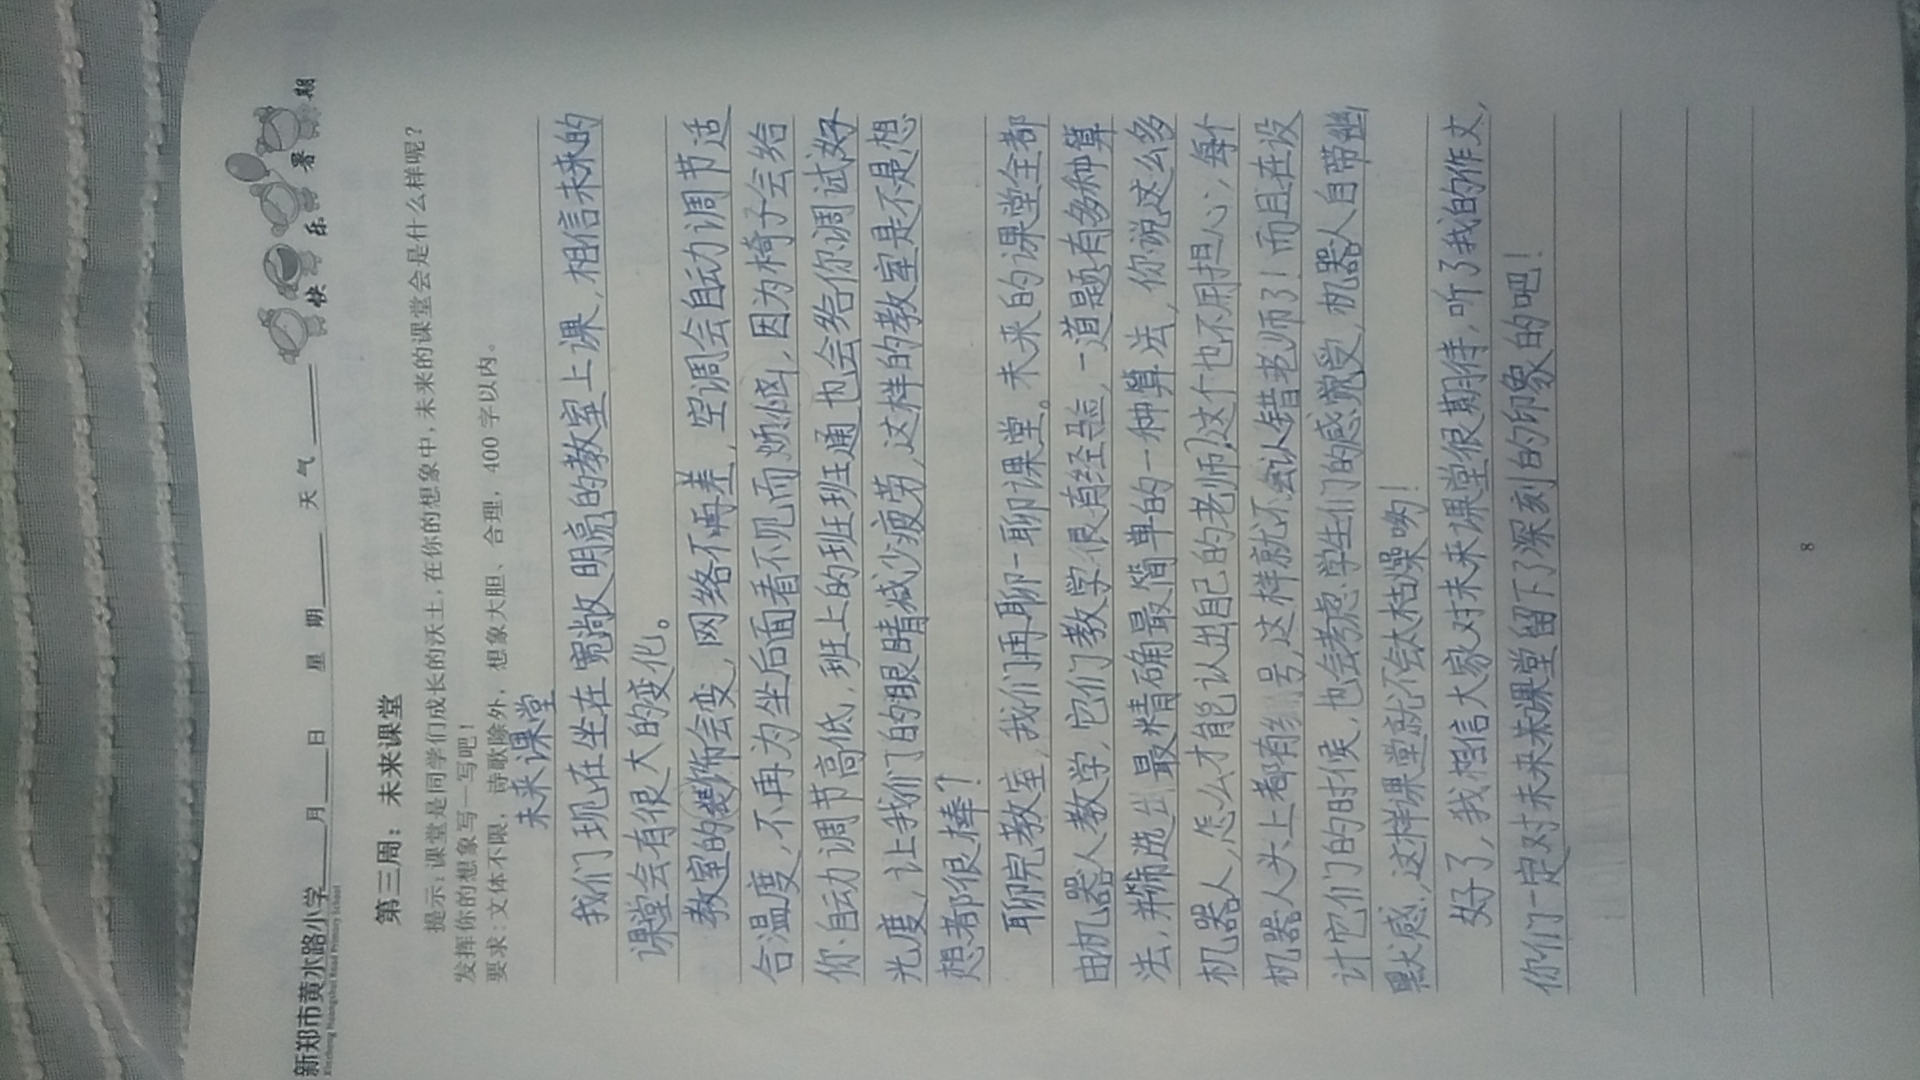 新郑市黄水路小学____月____日 星 期____ 天 气____ 快 乐 暑 期
Xinzheng Huangshui Road Primary School
第三周：未来课堂
提示：课堂是同学们成长的沃土，在你的想象中，未来的课堂会是什么样呢？
发挥你的想象写一写吧！
要求：文体不限，诗歌除外，想象大胆、合理，400 字以内。
未来课堂
我们现在坐在宽敞明亮的教室上课，相信未来的
课堂会有很大的变化。
教室的装饰会变，网络不再差，空调会自动调节适
合温度，不再为坐后面看不见而烦恼，因为椅子会给
你自动调节高低，班上的班班通也会给你调试好
光度，让我们的眼睛减少疲劳，这样的教室是不是想
想都很棒？
聊完教室，我们再聊一聊课堂。未来的课堂全都
由机器人教学，它们教学很有经验，一道题有多种算
法，并筛选出最精确最简单的一种算法，你说这么多
机器人，怎么才能认出自己的老师，这个也不用担心，每个
机器人头上都有编号，这样就不会认错老师了！而且在设
计它们的时候，也会考虑学生们的感觉受，机器人自带幽
默感，这样课堂就不会太枯燥哟！
好了，我相信大家对未来课堂很期待，听了我的作文，
你们一定对未来课堂留下了深刻的印象的吧！
8